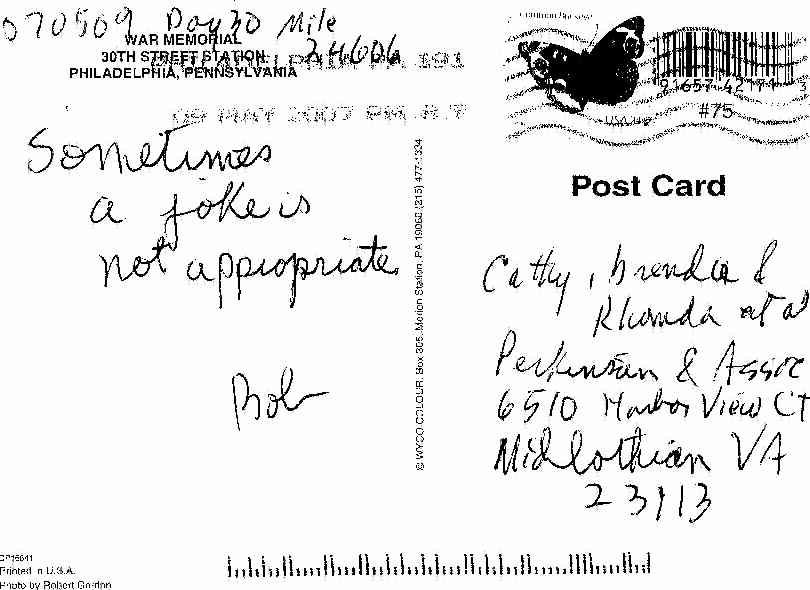 070509 Day 30 Mile
24606
WAR MEMORIAL
30TH STREET STATION
PHILADELPHIA, PENNSYLVANIA
PA 191
09 MAY 2007 PM
Sometimes
a joke is
not appropriate
Bob
© WYCO COLOUR, Box 305, Merion Station, PA 19066 (215) 477-1334
Common Buckeye
USA
91657 42171
#75
Post Card
Cathy, Brenda &
Rhonda et al
Perkinson & Assoc
6510 Harbor View CT
Midlothian VA
23113
Printed in U.S.A.
Photo by Robert Gordon